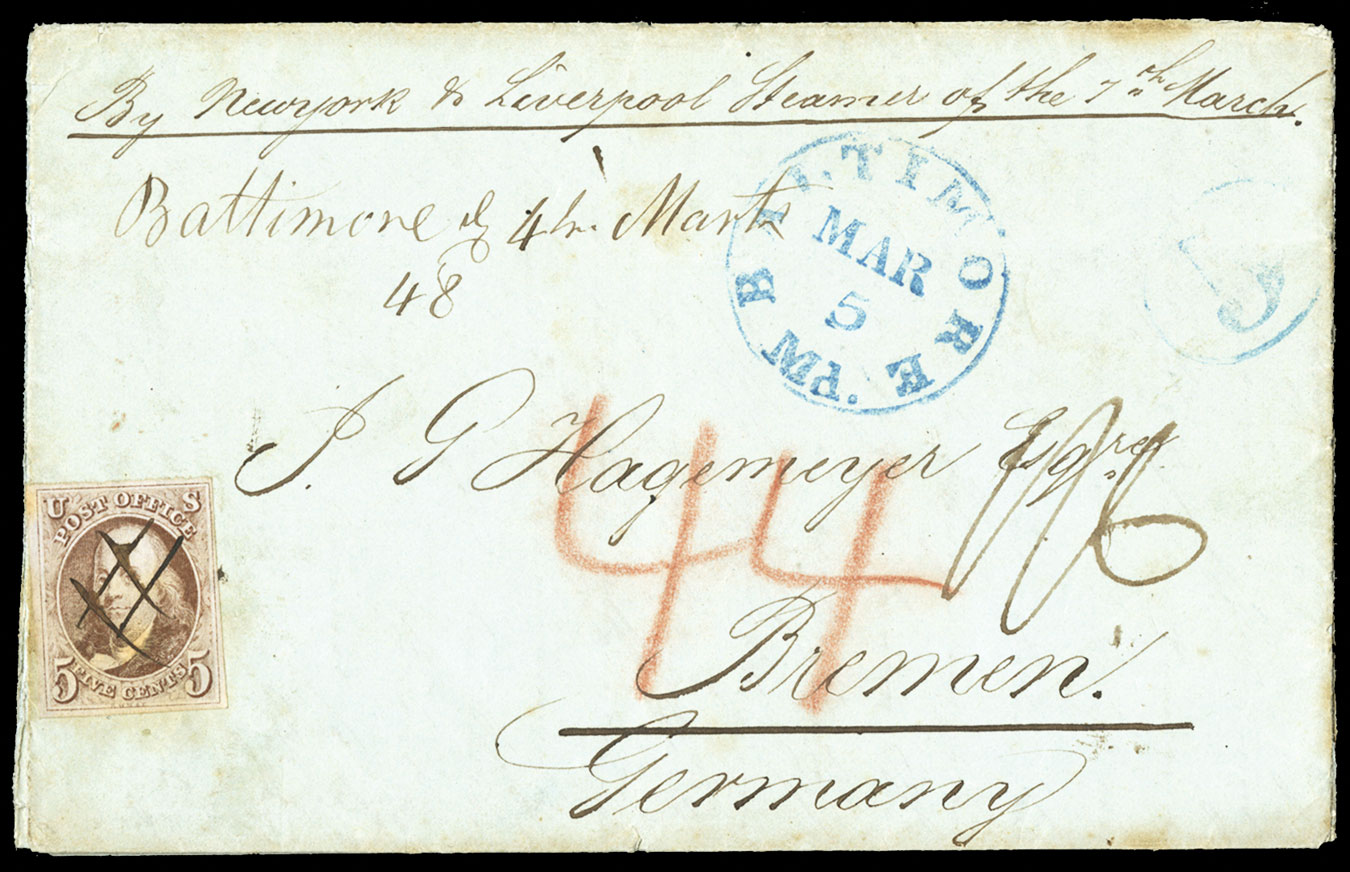 By Newyork & Liverpool Steamer of the 7th March.
Baltimore 4h. Marts
48
BALTIMORE Md.
MAR
5
5
J. G Hagemeyer Esqre
44
Bremen.
Germany
U S
POST OFFICE
5 FIVE CENTS 5